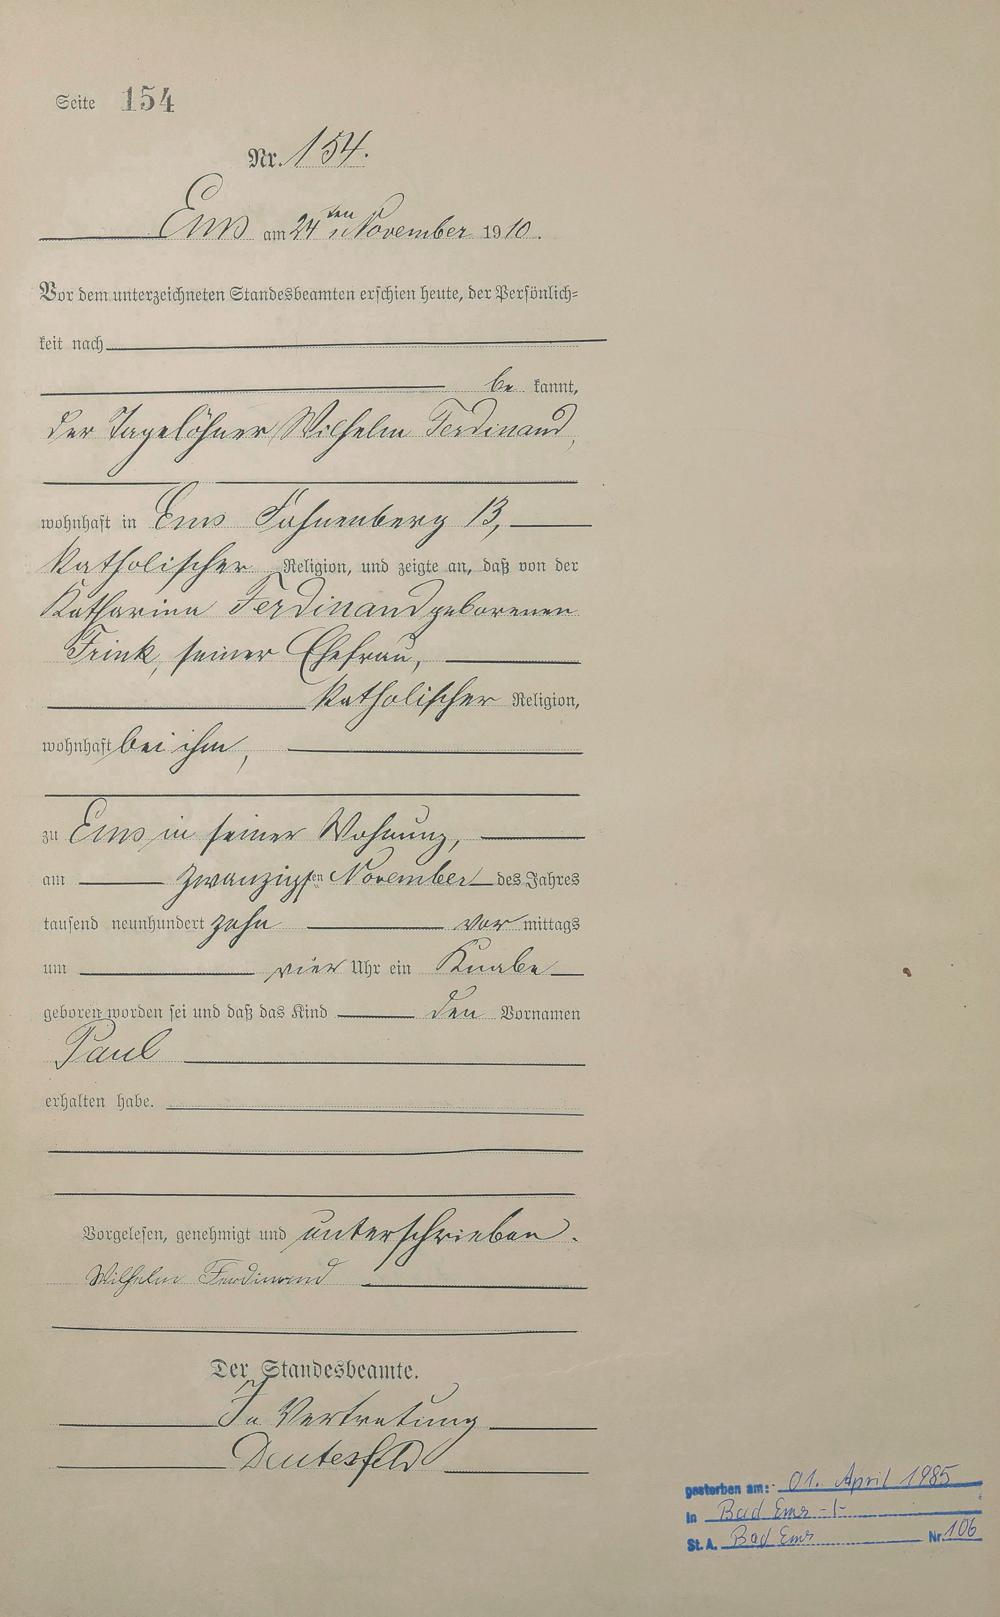 Seite 154
Nr. 154.
Ems am 24ten November 1910.
Vor dem unterzeichneten Standesbeamten erschien heute, der Persönlich=
keit nach
be kannt,
der Tagelöhner Wilhelm Ferdinand,
wohnhaft in Ems 13,
katholischer Religion, und zeigte an, daß von der
Katharina Ferdinand geborenen
Frink, seiner Ehefrau,
katholischer Religion,
wohnhaft bei ihm,
zu Ems in seiner Wohnung,
am zwanzigsten November des Jahres
tausend neunhundert zehn vor mittags
um vier Uhr ein Knabe
geboren worden sei und daß das Kind den Vornamen
Paul
erhalten habe.
Vorgelesen, genehmigt und unterschrieben.
Wilhelm Ferdinand
Der Standesbeamte.
In Vertretung
gestorben am: 01. April 1985
in Bad Ems -1-
St. A. Bad Ems Nr. 106